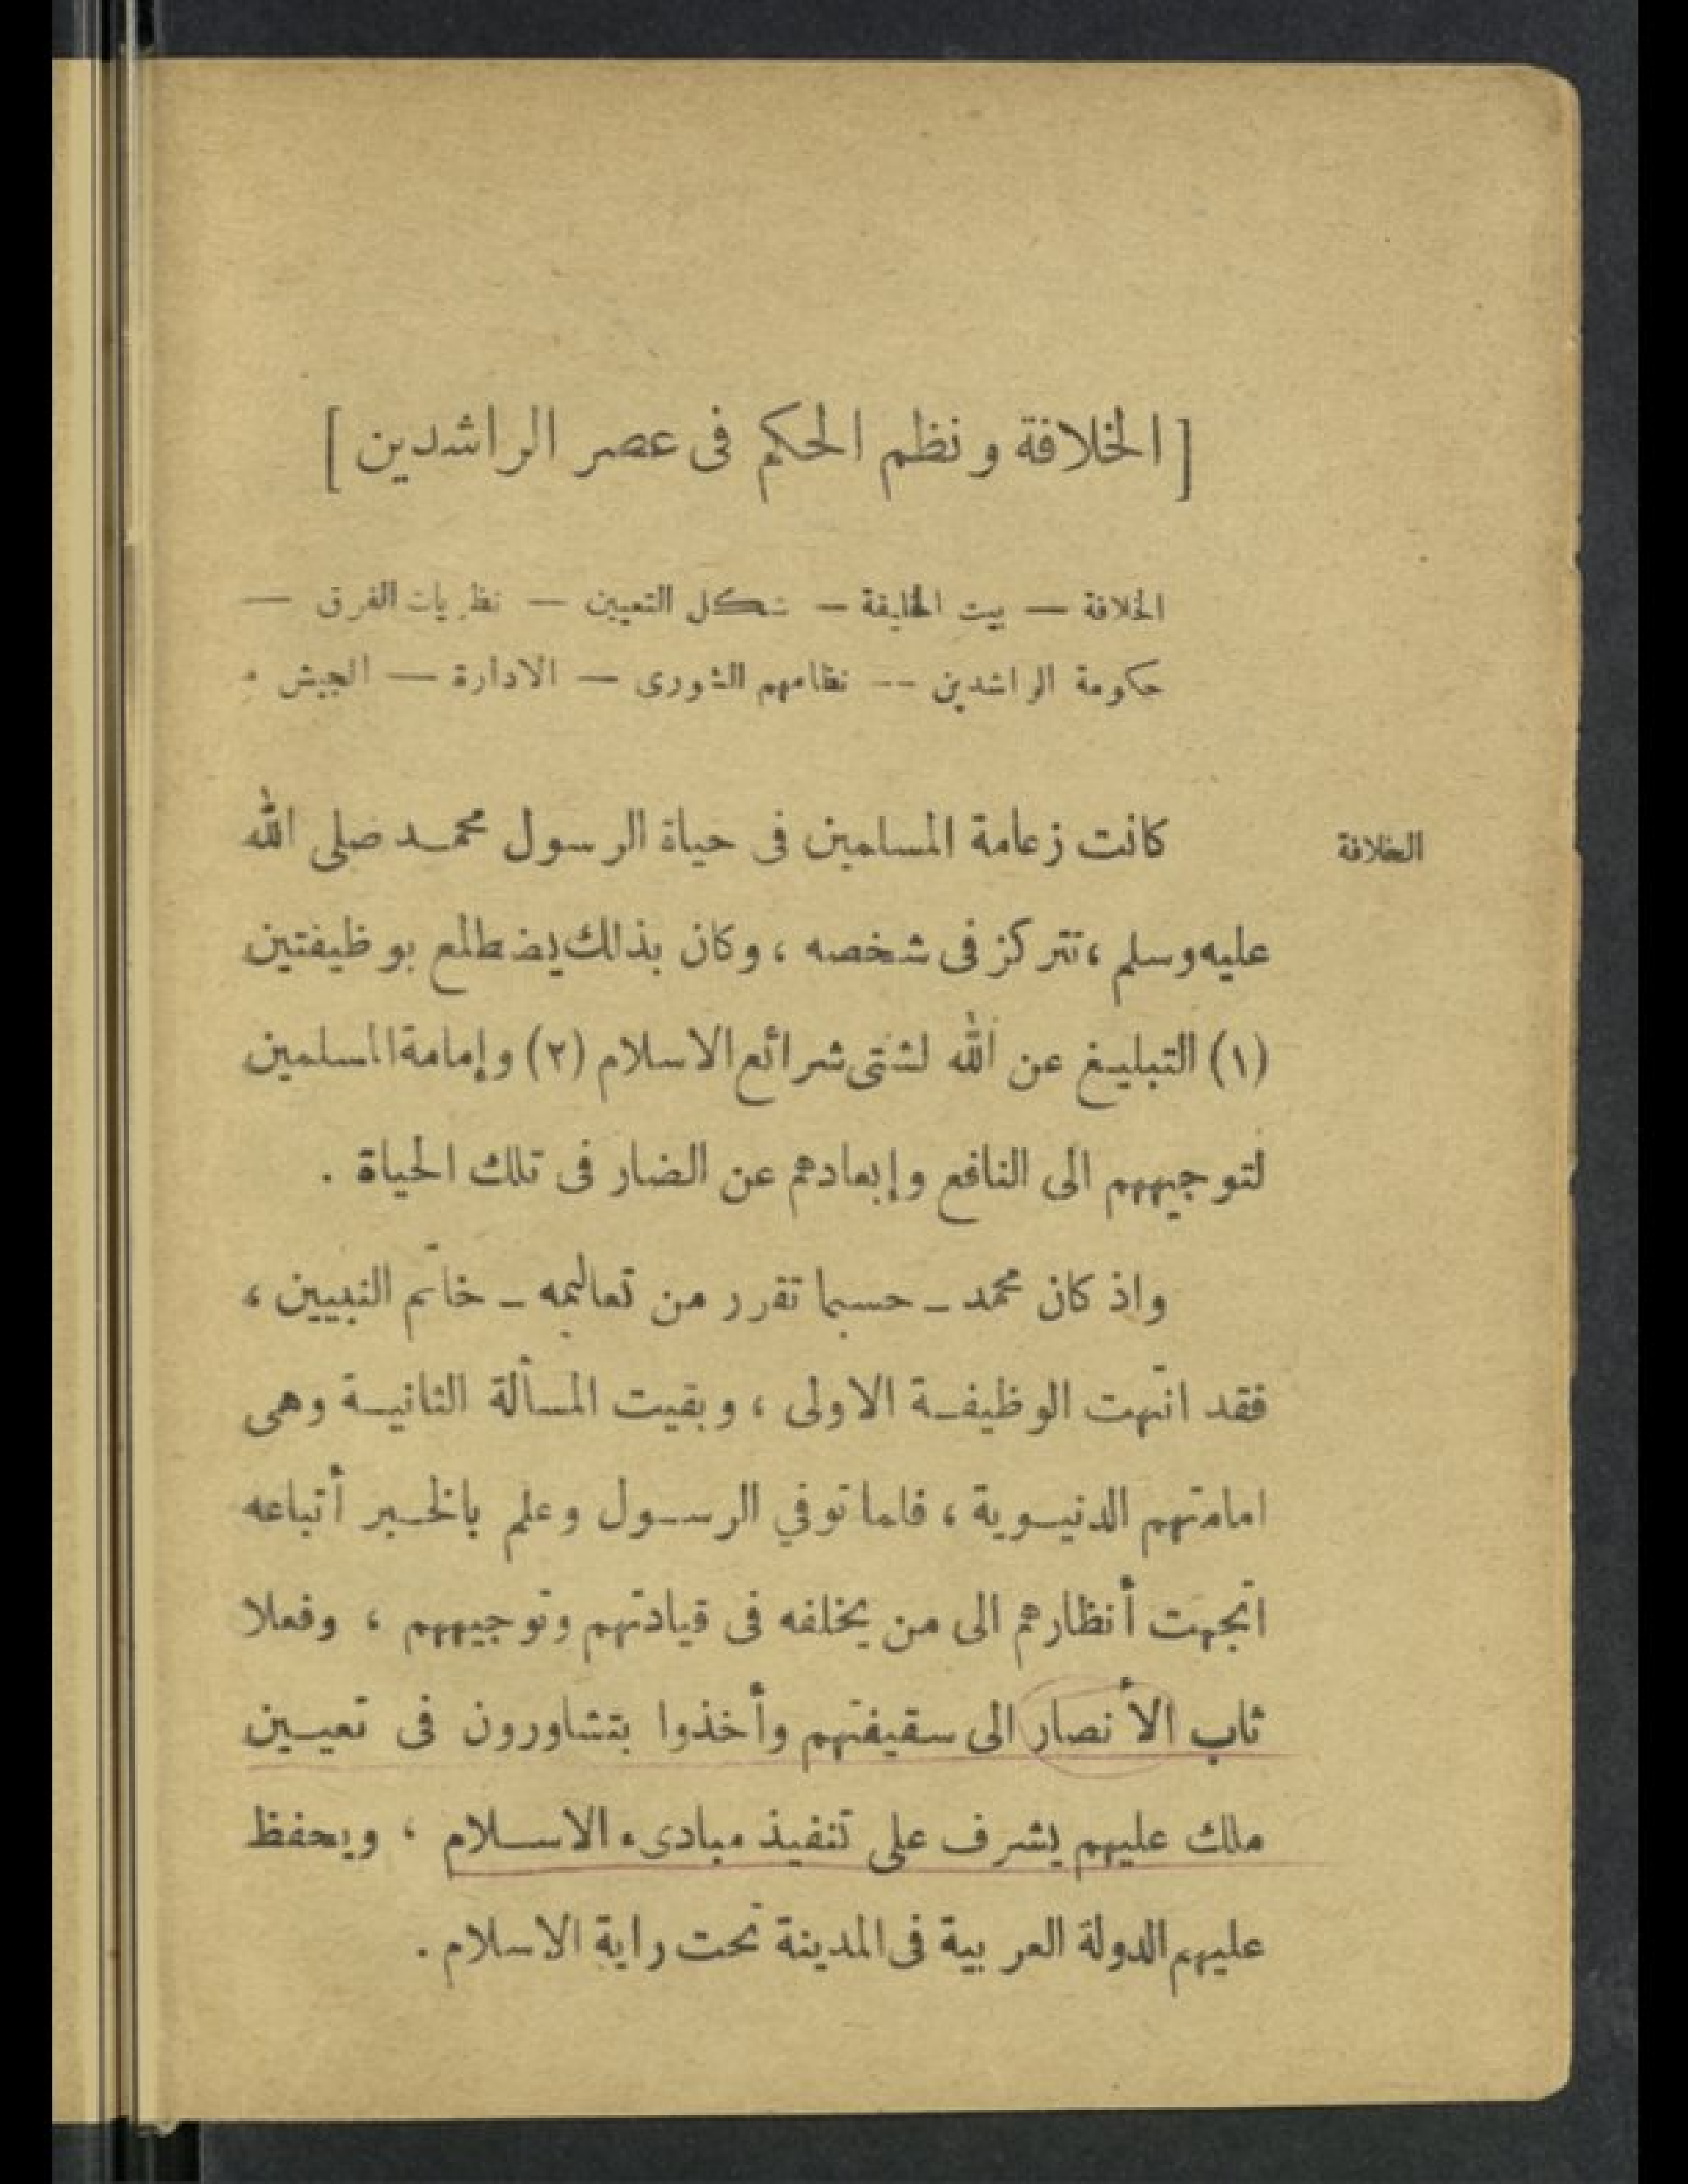 [ الخلافة ونظم الحكم فى عصر الراشدين ]
الخلافة — بيت الخليفة — شكل التعيين — نظريات الفرق —
حكومة الراشدين -- نظامهم الشورى — الادارة — الجيش .
الخلافة
كانت زعامة المسلمين فى حياة الرسول محمد صلى الله
عليه وسلم ، تتركز فى شخصه ، وكان بذلك يضطلع بوظيفتين
(١) التبليغ عن الله لشتى شرائع الاسلام (٢) وإمامة المسلمين
لتوجيههم الى النافع وإبعادهم عن الضار فى تلك الحياة .
واذ كان محمد ـ حسبما تقرر من تعاليمه ـ خاتم النبيين ،
فقد انتهت الوظيفة الاولى ، وبقيت المسألة الثانية وهى
امامتهم الدنيوية ، فلما توفي الرسول وعلم بالخبر أتباعه
اتجهت أنظارهم الى من يخلفه فى قيادتهم وتوجيههم ، وفعلا
ثاب الأنصار الى سقيفتهم وأخذوا يتشاورون فى تعيين
ملك عليهم يشرف على تنفيذ مبادىء الاسلام ، ويحفظ
عليهم الدولة العربية فى المدينة تحت راية الاسلام .